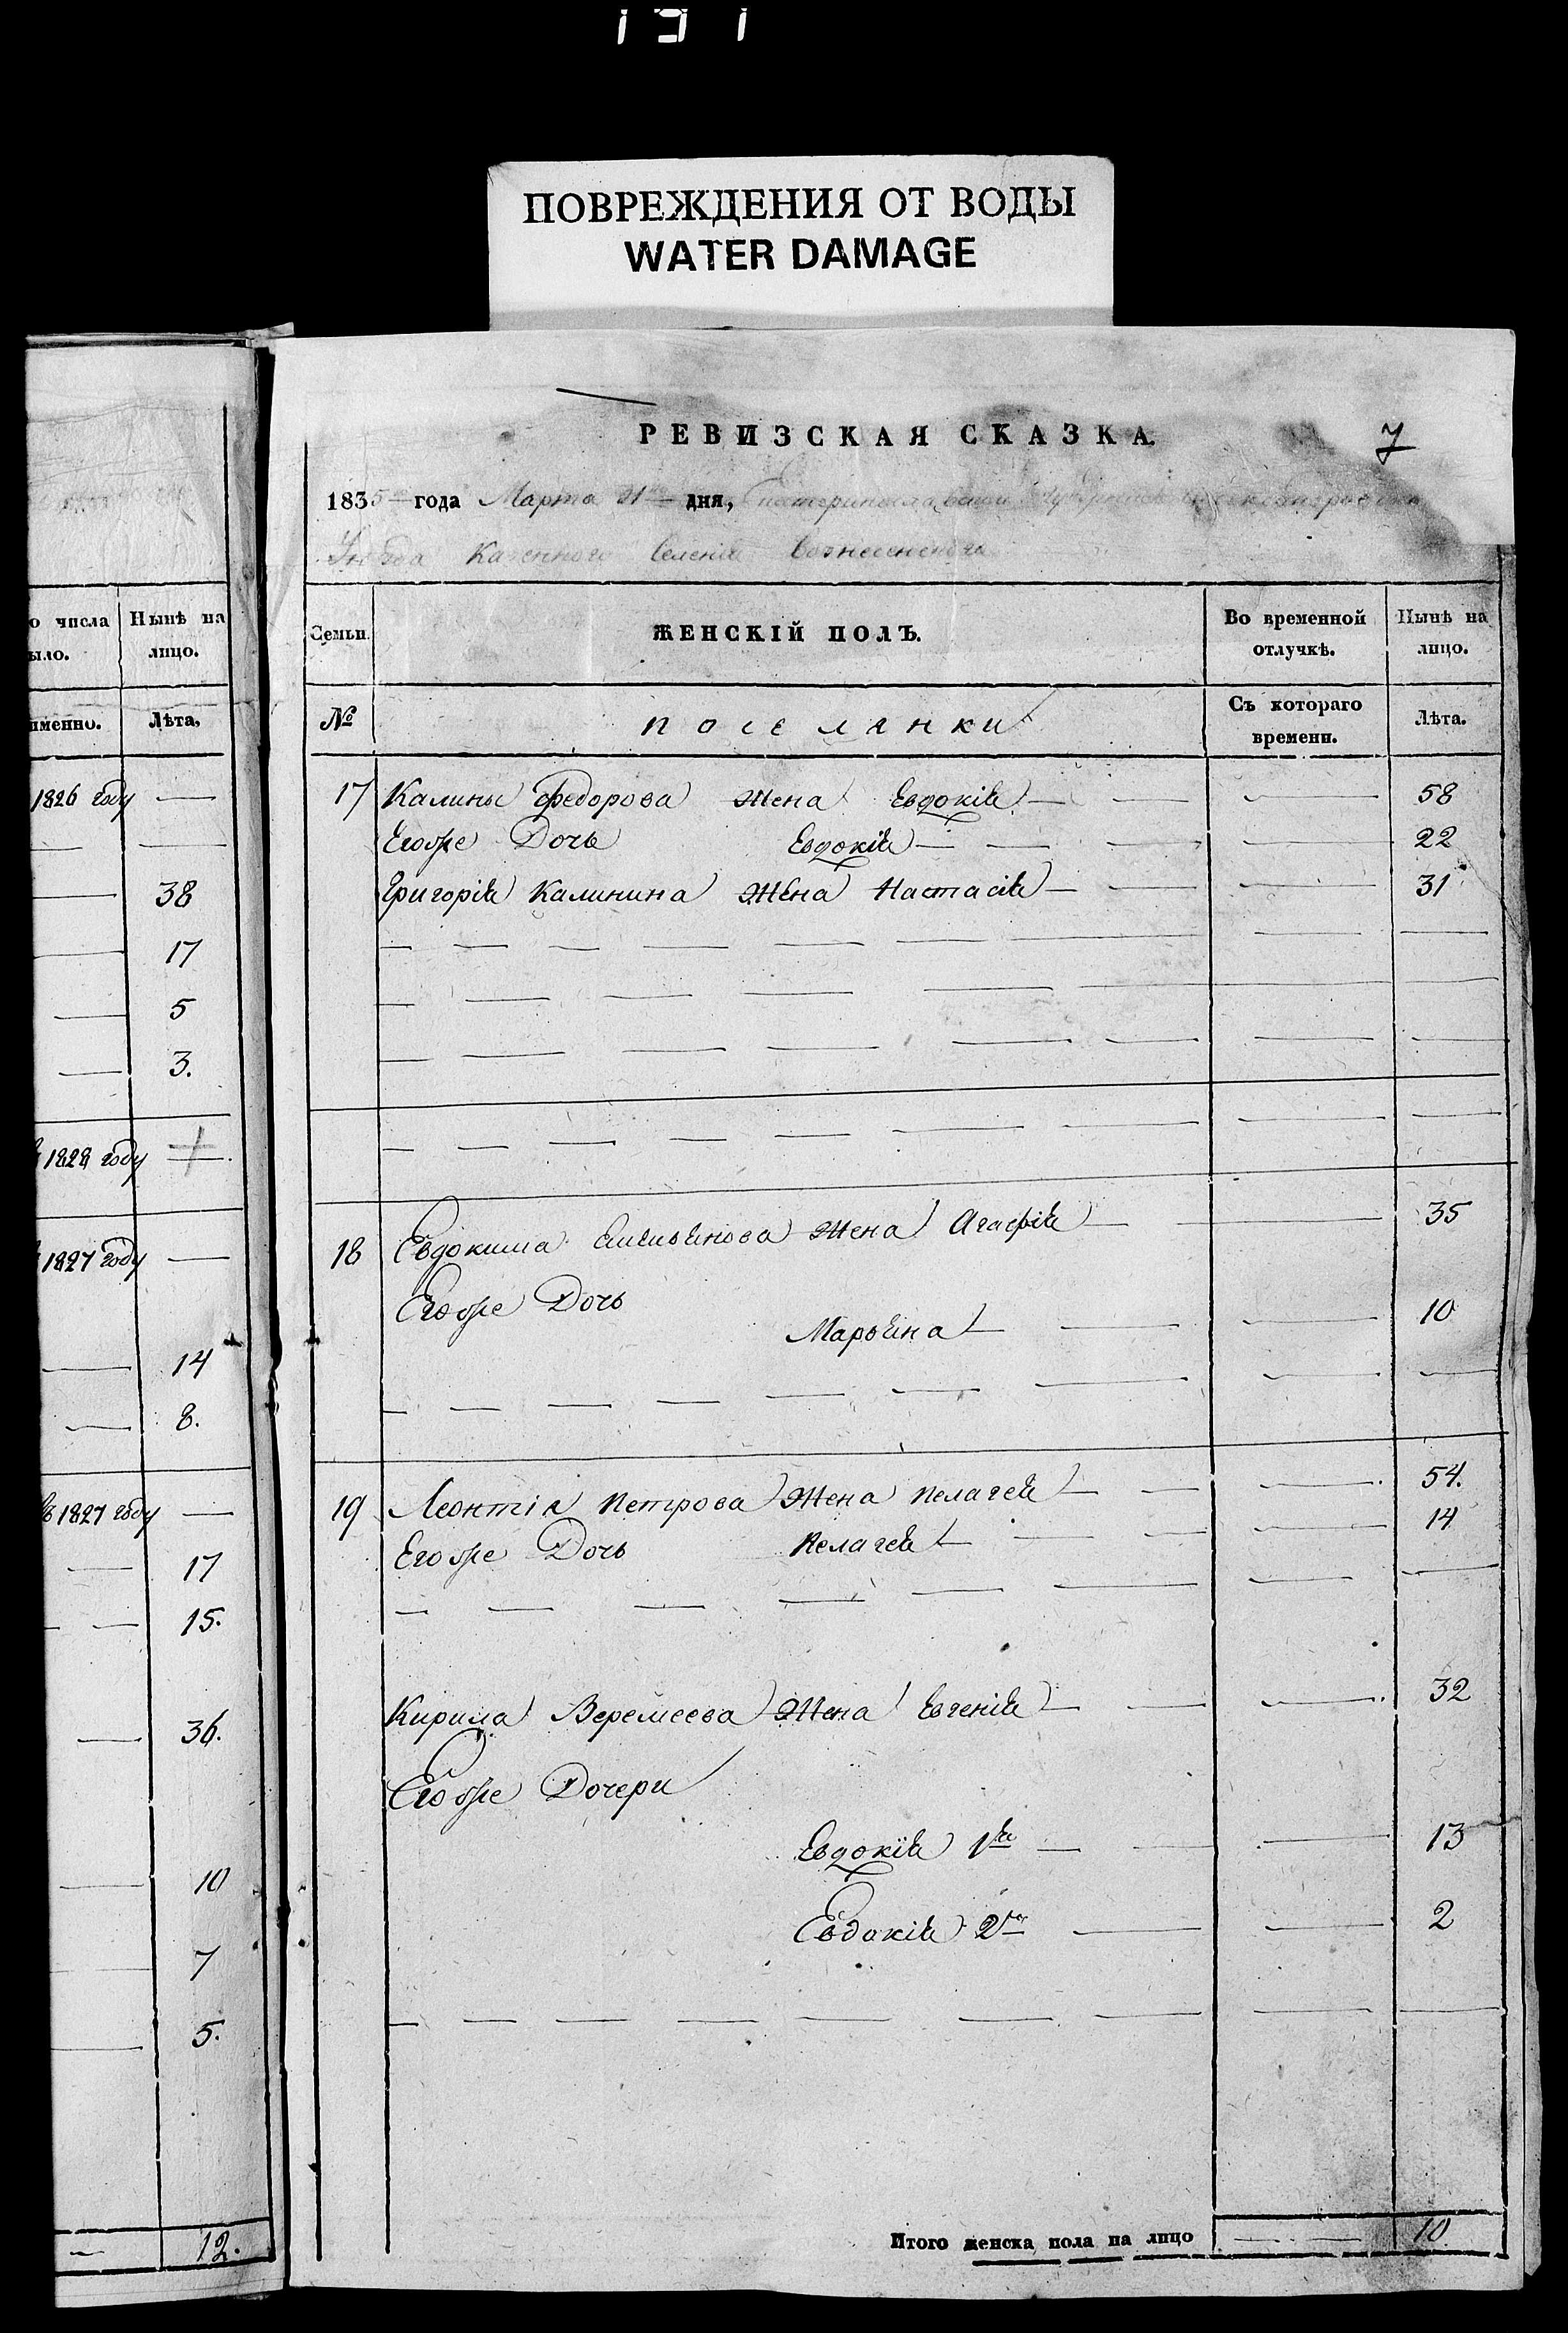 151
ПОВРЕЖДЕНИЯ ОТ ВОДЫ
WATER DAMAGE
о числа
ыло.
Нынѣ на
лицо.
именно.
Лѣта,
1826 году —
38
17
5
3.
1828 году
1827 году —
14
8.
1827 году —
17
15.
36.
10
7
5.
12.
РЕВИЗСКАЯ СКАЗКА.
7
1835 года Марта 31 дня,
Уѣзда Казенного Селенія Вознесенского
Семьи.
ЖЕНСКІЙ ПОЛЪ.
Во временной
отлучкѣ.
Нынѣ на
лицо.
№
поселянки
Съ котораго
времени.
Лѣта.
17 Калины Федорова жена Евдокія — 58
Егоже Дочь Евдокія — 22
Григорія Калинина жена Настасія — 31
18 Евдокима Емельянова жена Агафія — 35
Егоже Дочь
Марьяна — 10
19 Леонтія Петрова жена Пелагея — 54.
Егоже Дочь Пелагея — 14
Кирила Веремеева жена Евгенія — 32
Егоже Дочери
Евдокія 1я — 13
Евдокія 2я — 2
Итого женска пола на лицо — 10